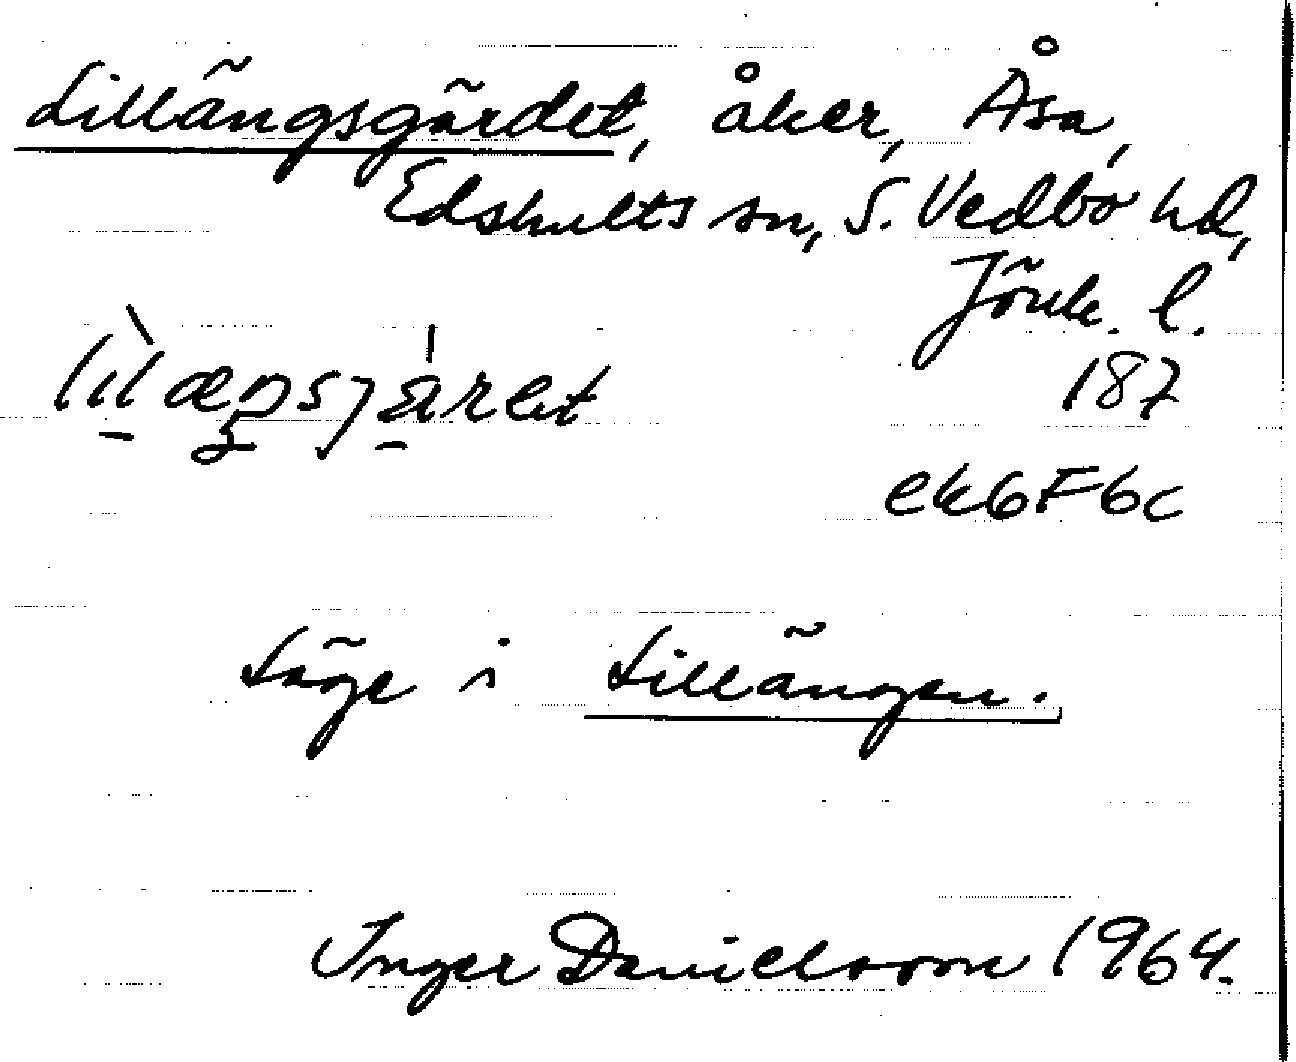 Lillängsgärdet, åker, Åsa,
Edshults sn, S. Vedbo hd,
Jönk. l.
187
ek6F6c
Läge i Lillängen.
Inger Danielsson 1964.